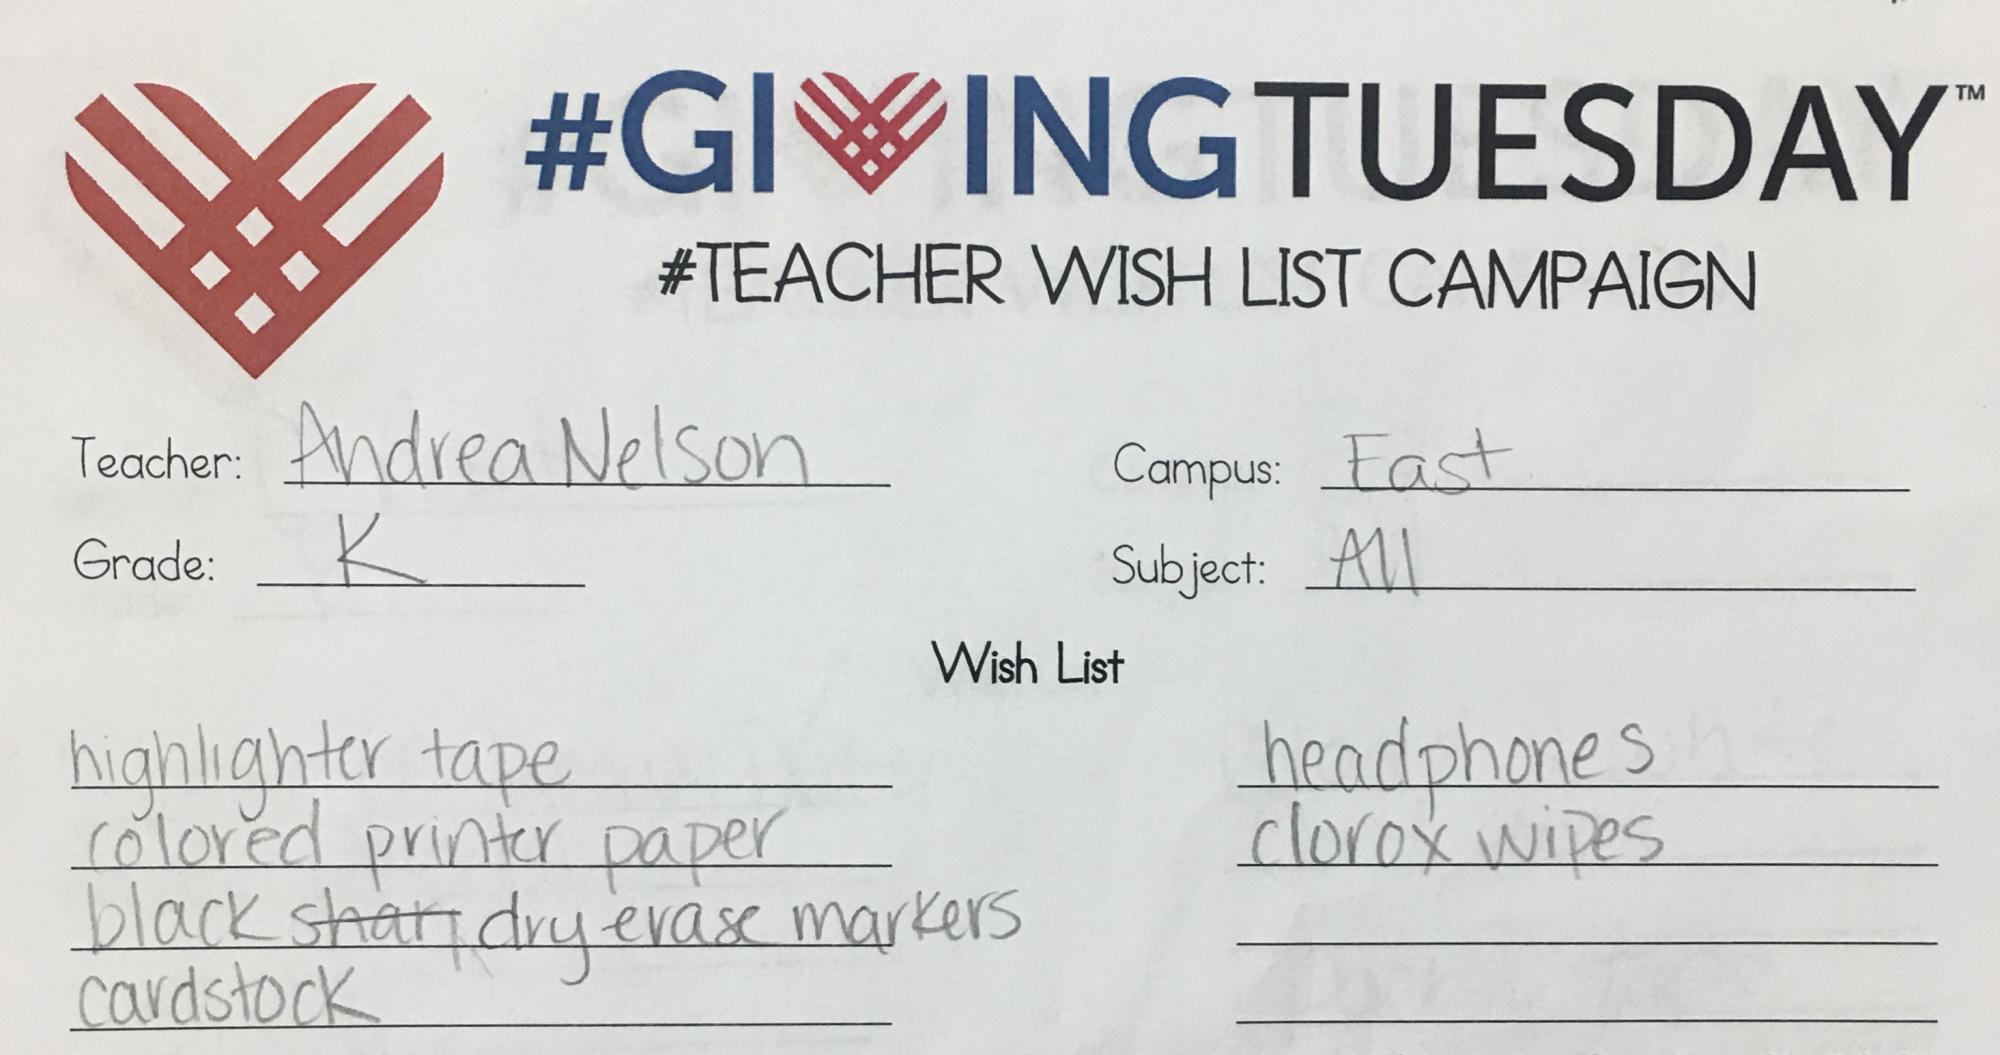 #GIVINGTUESDAY™
#TEACHER WISH LIST CAMPAIGN
Teacher: Andrea Nelson
Campus: East
Grade: K
Subject: All
Wish List
highlighter tape
colored printer paper
black dry erase markers
cardstock
headphones
clorox wipes